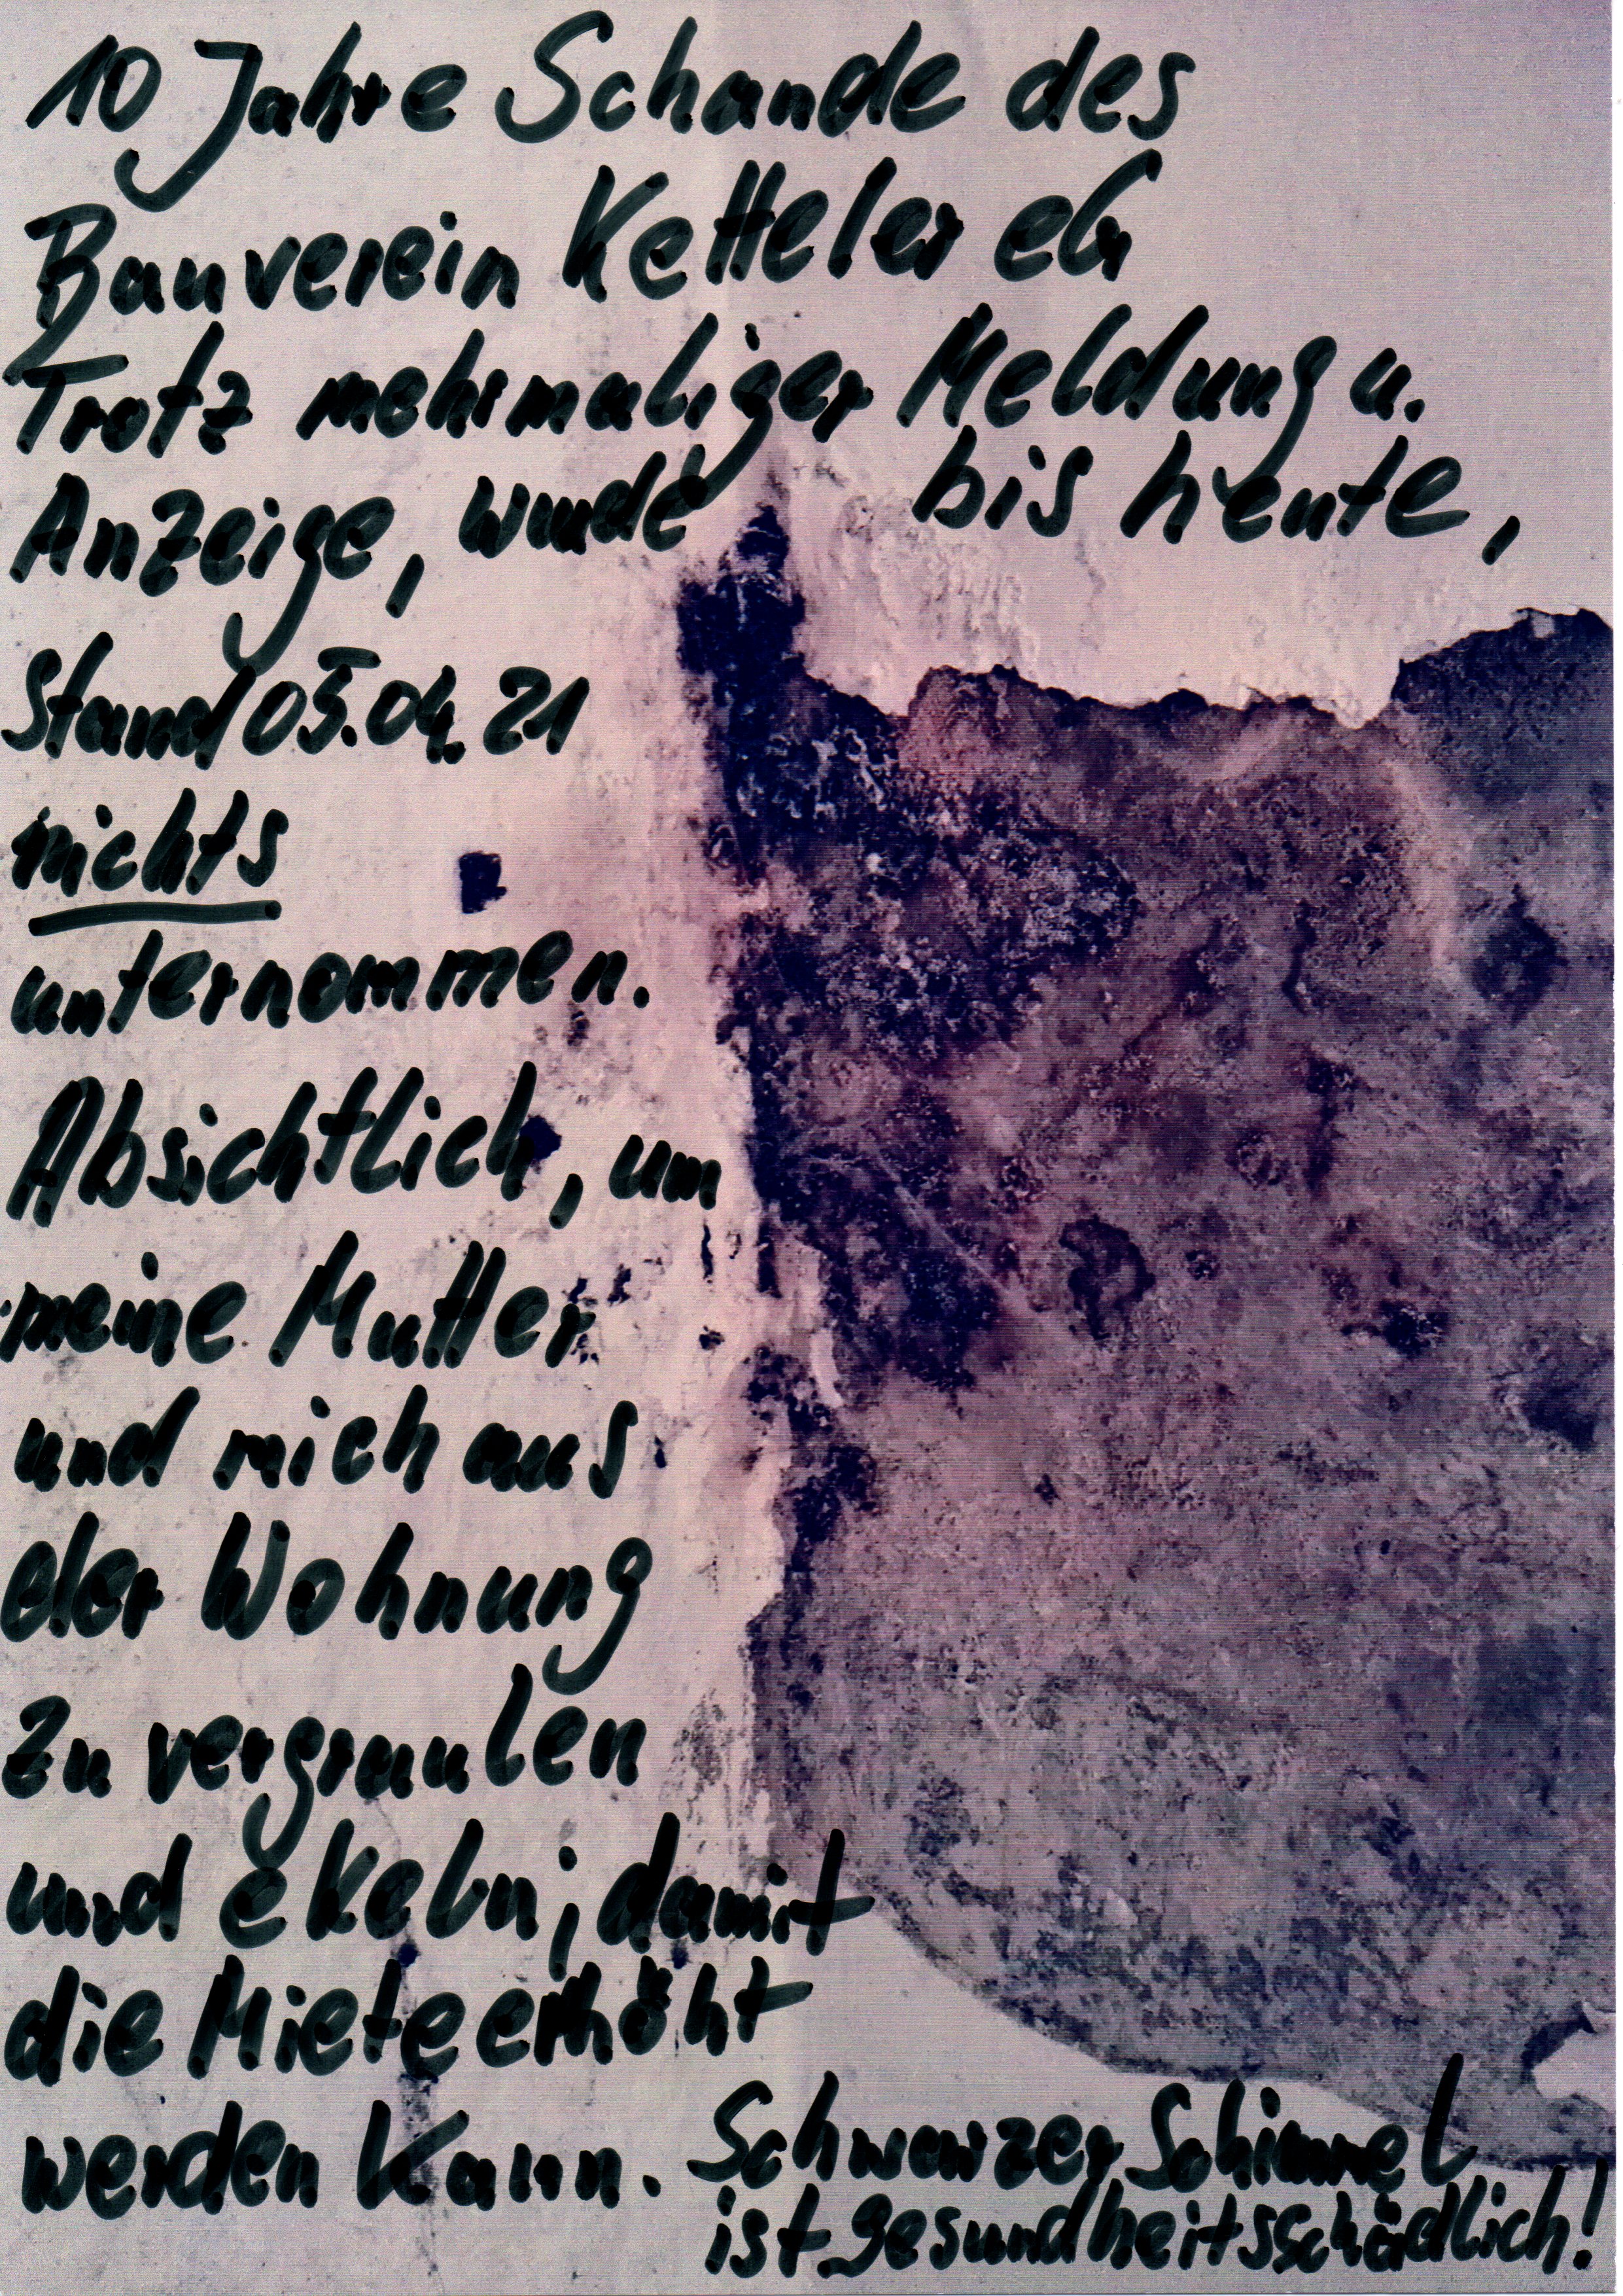 10 Jahre Schande des
Bauverein Ketteler eG
Trotz mehrmaliger Meldung u.
Anzeige, wurde bis heute,
Stand 05.04.21
nichts
unternommen.
Absichtlich, um
meine Mutter
und mich aus
der Wohnung
zu vergraulen
und ekeln; damit
die Miete erhöht
werden kann.
Schwarzer Schimmel
ist gesundheitsschädlich!